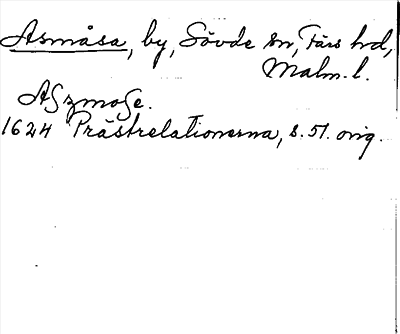 Asmåsa, by, Sövde sn, Färs hd,
Malm. l.
Aszmose.
1624 Prästrelationerna, s. 51. orig.